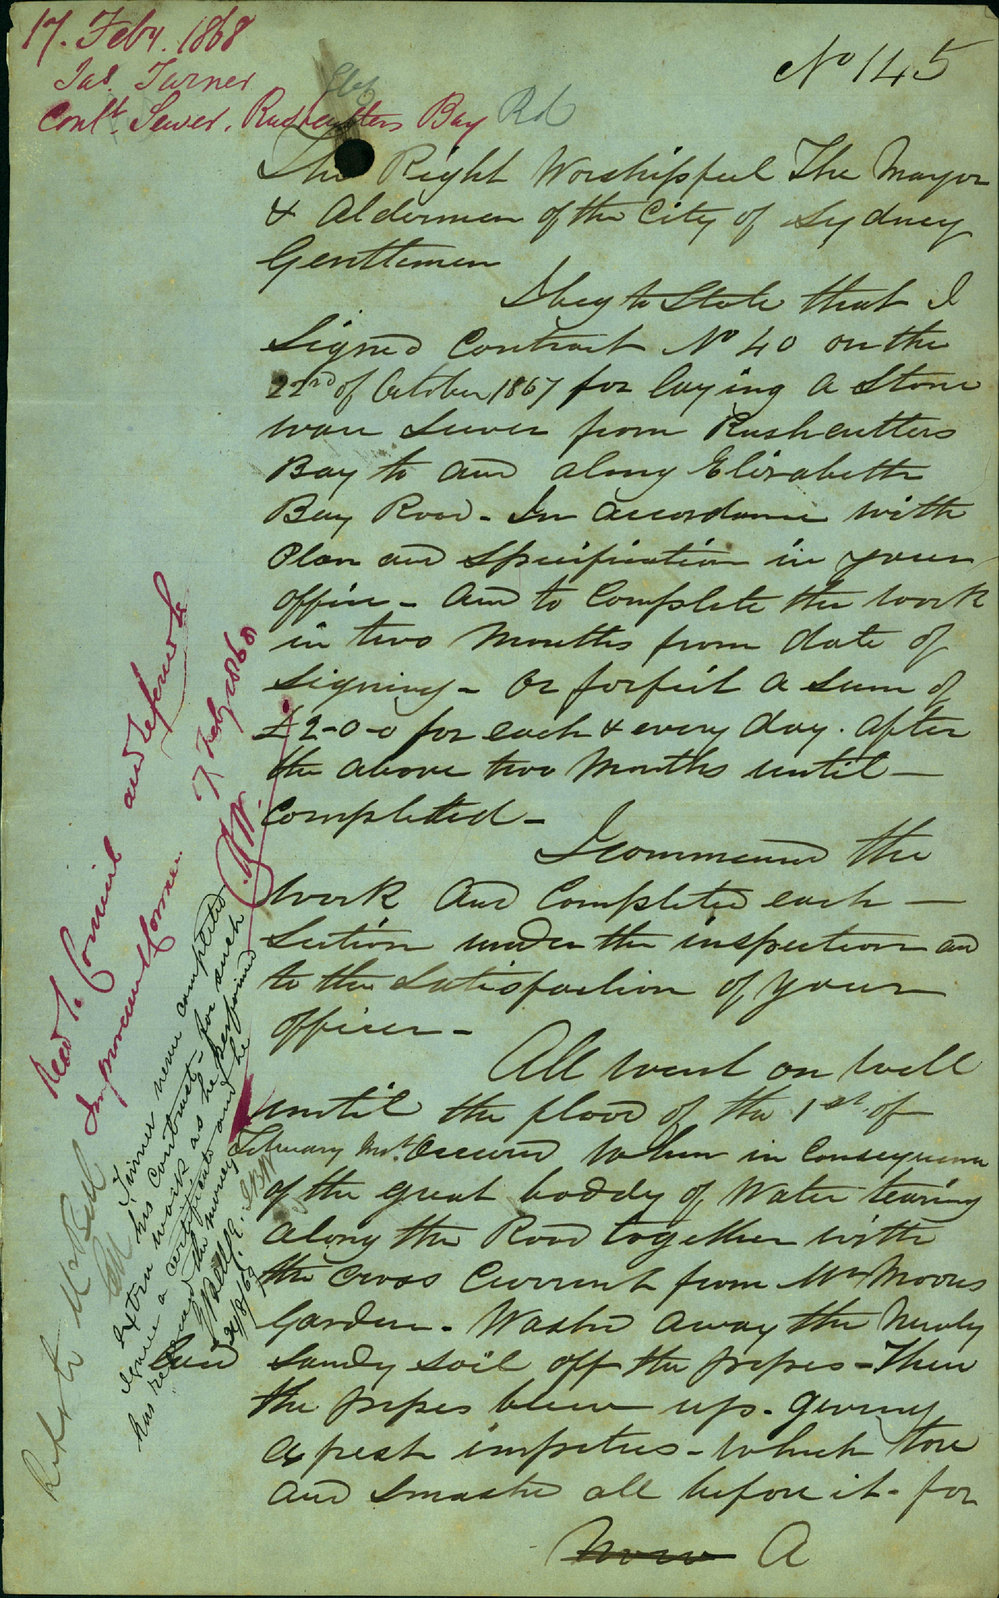 17. Feby. 1868
Jas. Turner
Cont. Sewer. Rushcutters Bay Rd
Elizth
No 145
The Right Worshipful The Mayor
& Aldermen of the City of Sydney
Gentlemen
I beg to State that I
Signed Contract No 40 on the
22nd of October 1867 for laying a Stone
ware Sewer from Rushcutters
Bay to and along Elizabeth
Bay Road - In accordance with
Plan and Specification in your
office - And to Complete the work
in two Months from date of
Signing - Or forfeit a Sum of
£2-0-0 for each & every day. after
the above two Months until -
Completed -
I commenced the
Work and Completed each -
Section under the inspection and
to the Satisfaction of your
officer -
All went on well
until the flood of the 1st. of
February Mt. Occured when in Consequence
of the great boddy of Water tearing
along the Road together with
the Cross Current from Mr Moores
Garden - Washed away the Newly
laid Sandy Soil off the pipes - Then
the pipes blew up. giving
a fresh impetus - which tore
and Smashed all before it - for
Now A
Read To Council and referred to
Improvement Comee. 17 Feby 1868
Turner never completed
his Contract - for such
extra work as he performed
I gave a certificate and he
has received the money
Refer to Mr Bell